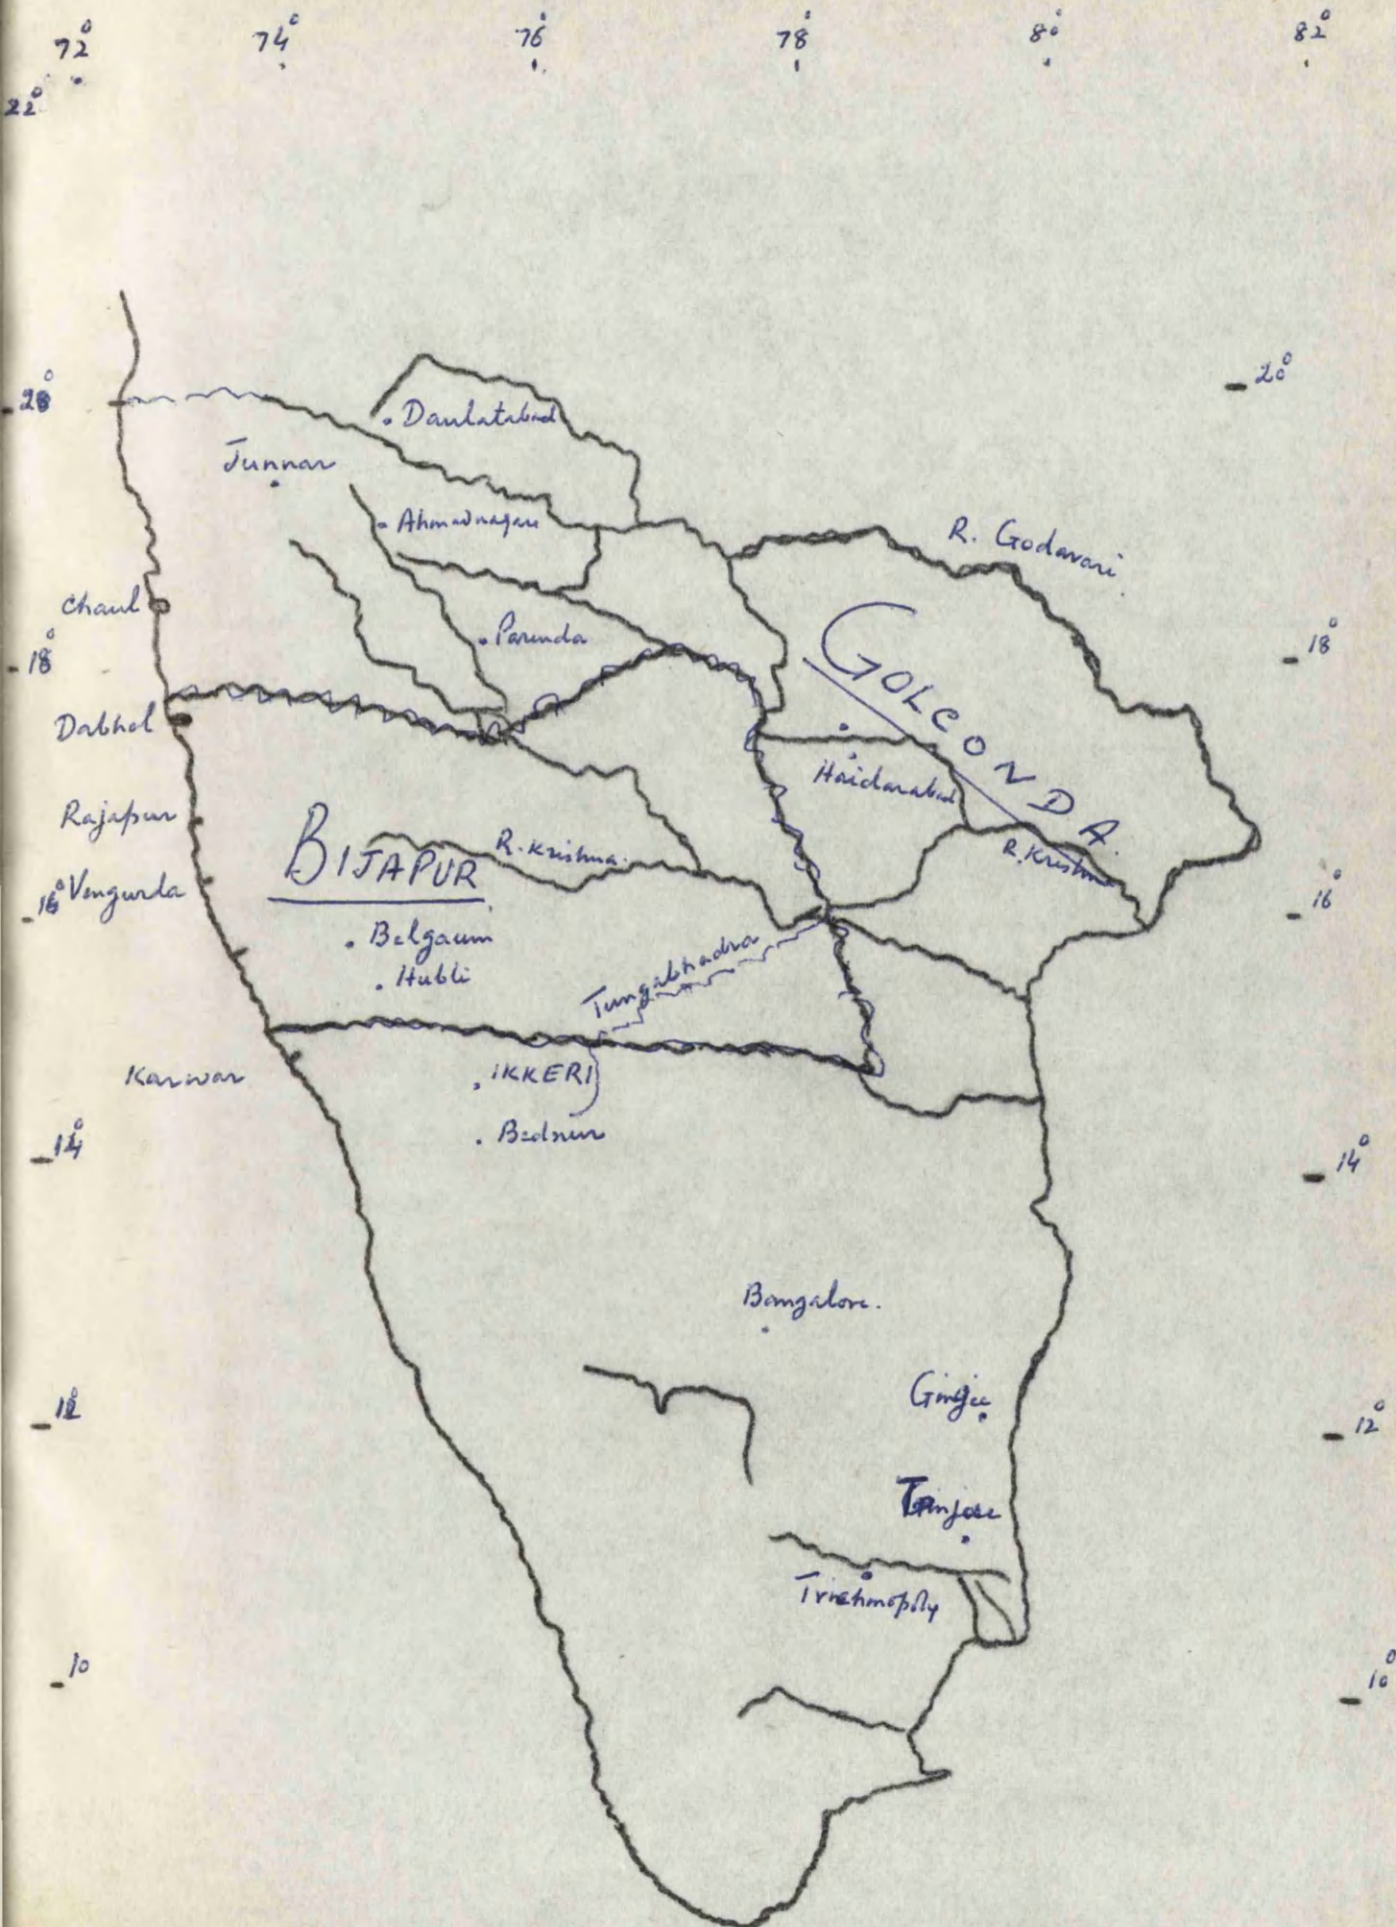 72° 74° 76° 78° 80° 82°
22°
20° 20°
Daulatabad
Junnar
Ahmadnagar
R. Godavari
Chaul
Parenda
18° 18°
GOLCONDA
Dabhol
Haidarabad
Rajapur
BIJAPUR
R. Krishna
R. Krishna
16° Vengurla 16°
Belgaum
Hubli
Tungabhadra
Karwar
IKKERI
Bednur
14° 14°
Bangalore.
Ginjee
12° 12°
Tanjore
Trichinopoly
10 10°